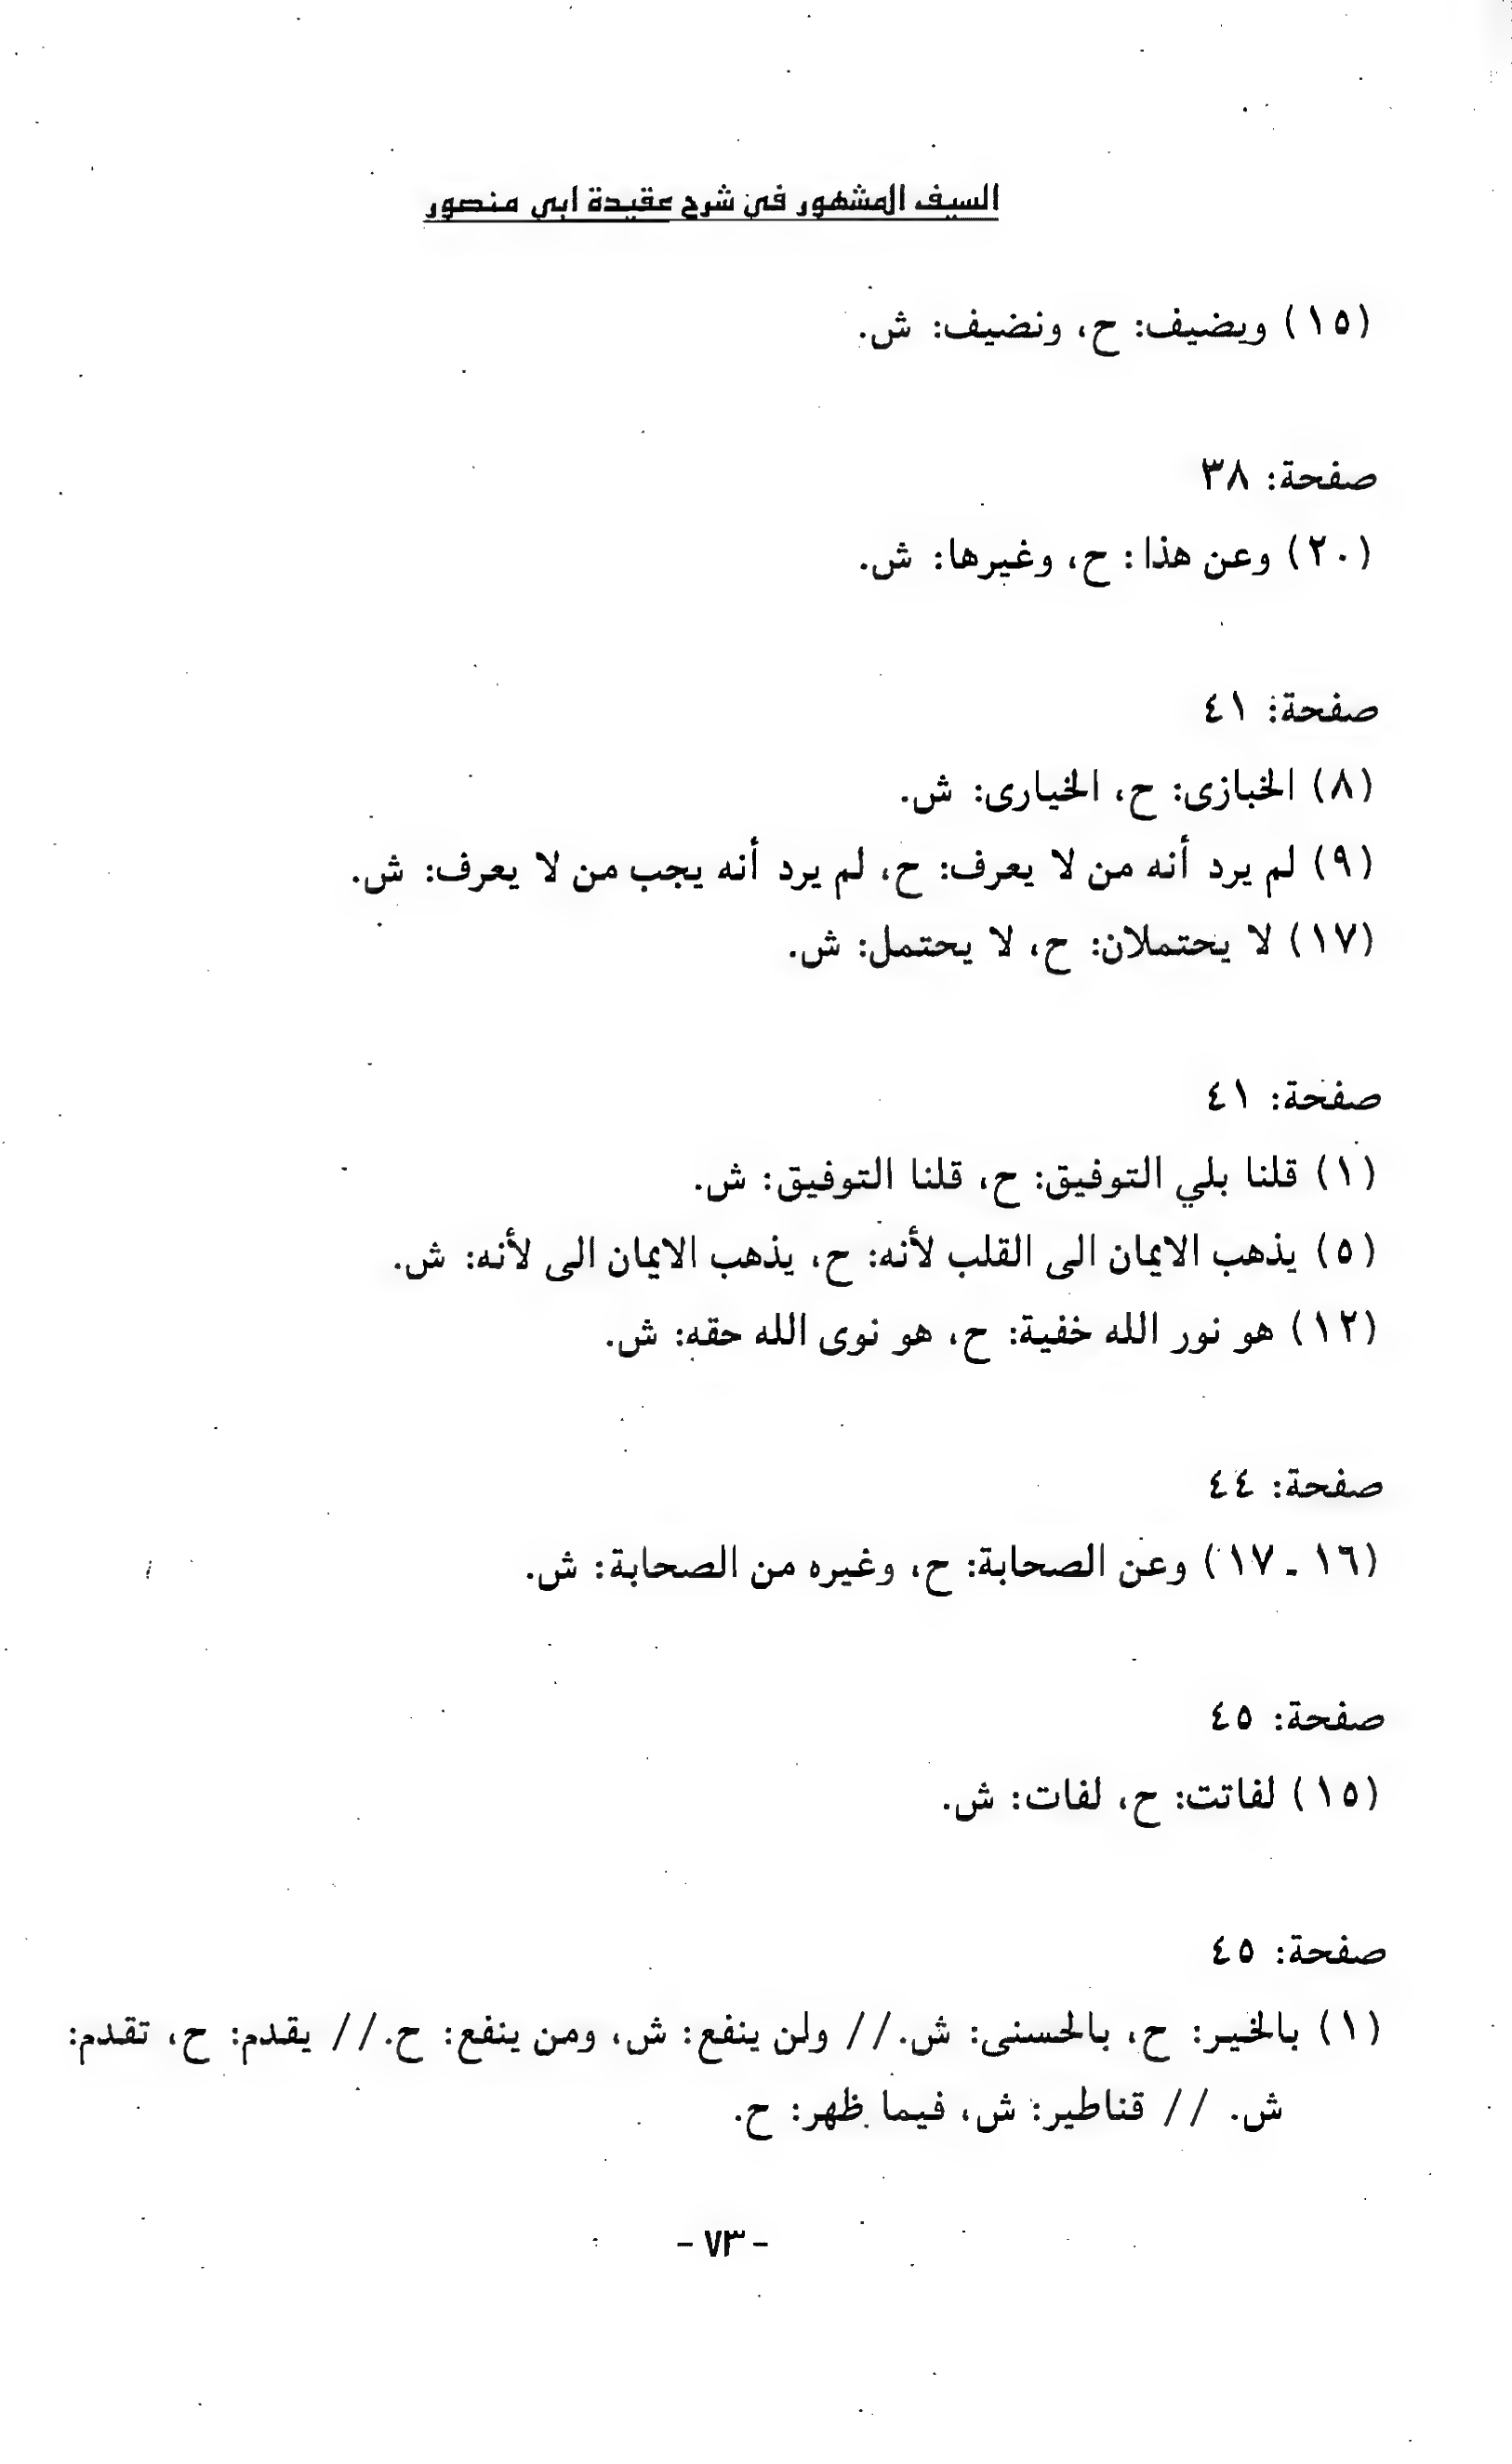 السيف المشهور في شرح عقيدة ابي منصور
(١٥) ويضيف: ح، ونضيف: ش.
صفحة: ٣٨
(٢٠) وعن هذا: ح، وغيرها: ش.
صفحة: ٤١
(٨) الخبازى: ح، الخيارى: ش.
(٩) لم يرد أنه من لا يعرف: ح، لم يرد أنه يجب من لا يعرف: ش.
(١٧) لا يحتملان: ح، لا يحتمل: ش.
صفحة: ٤١
(١) قلنا بلي التوفيق: ح، قلنا التوفيق: ش.
(٥) يذهب الايمان الى القلب لأنه: ح، يذهب الايمان الى لأنه: ش.
(١٢) هو نور الله خفية: ح، هو نوى الله حقه: ش.
صفحة: ٤٤
(١٦ ـ ١٧) وعن الصحابة: ح، وغيره من الصحابة: ش.
صفحة: ٤٥
(١٥) لفاتت: ح، لفات: ش.
صفحة: ٤٥
(١) بالخير: ح، بالحسنى: ش.// ولن ينفع: ش، ومن ينفع: ح.// يقدم: ح، تقدم:
ش. // قناطير: ش، فيما ظهر: ح.
- ٧٣ -